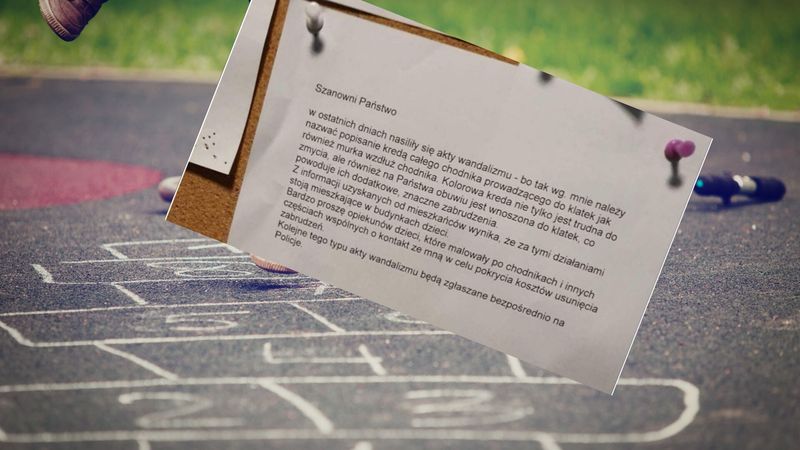 Szanowni Państwo
w ostatnich dniach nasiliły się akty wandalizmu - bo tak wg. mnie należy
nazwać popisanie kredą całego chodnika prowadzącego do klatek jak
również murka wzdłuż chodnika. Kolorowa kreda nie tylko jest trudna do
zmycia, ale również na Państwa obuwiu jest wnoszona do klatek, co
powoduje ich dodatkowe, znaczne zabrudzenia.
Z informacji uzyskanych od mieszkańców wynika, że za tymi działaniami
stoją mieszkające w budynkach dzieci.
Bardzo proszę opiekunów dzieci, które malowały po chodnikach i innych
częściach wspólnych o kontakt ze mną w celu pokrycia kosztów usunięcia
zabrudzeń.
Kolejne tego typu akty wandalizmu będą zgłaszane bezpośrednio na
Policję.
5
4
2
3